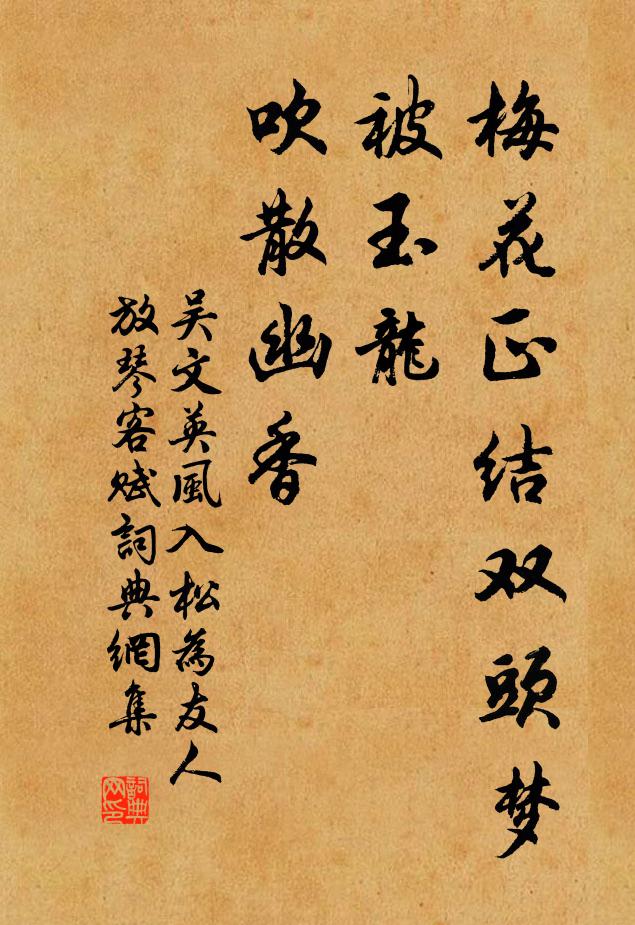 梅花正结双頭梦
被玉龍
吹散幽香
吴文英風入松為友人
放琴客赋詞典網集
詞典
网印